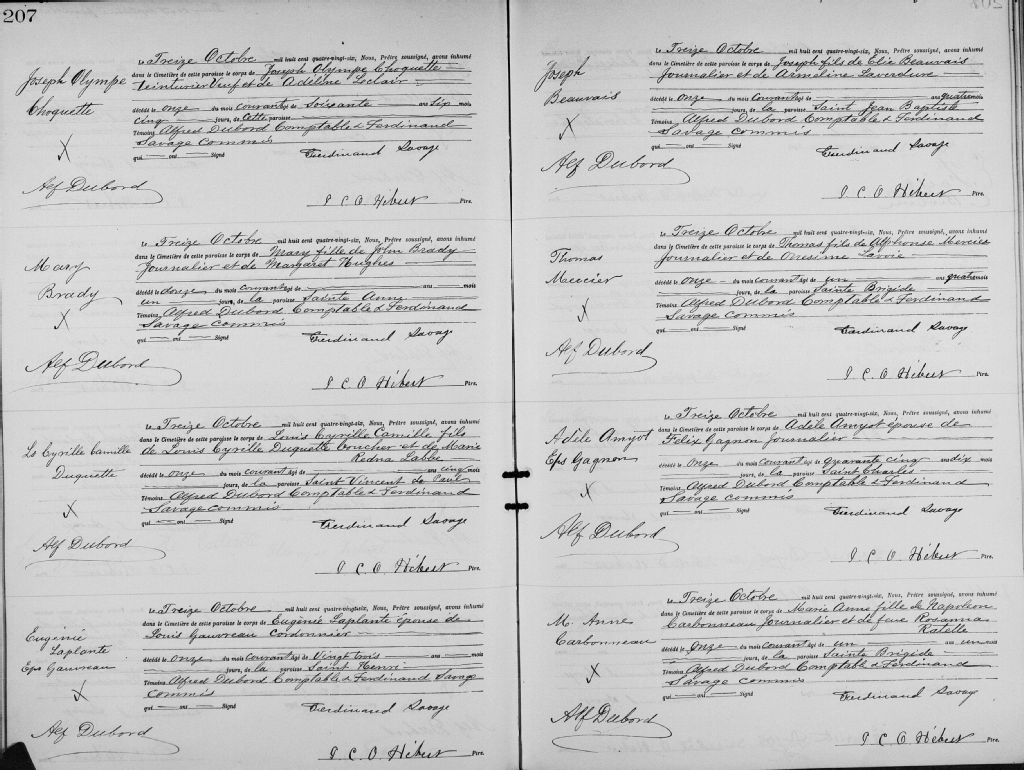 207
Joseph Olympe
Choquette
Le Treize Octobre mil huit cent quatre-vingt-six, Nous, Prêtre soussigné, avons inhumé
dans le Cimetière de cette paroisse le corps de Joseph Olympe Choquette
Teinturier Veuf et de Adéline Leclair
décédé le onze du mois courant âgé de Soixante ans six mois
cinq jours, de Cette paroisse
Témoins Alfred Dubord Comptable & Ferdinand
Savage commis
qui ont Signé
Ferdinand Savage
Alf Dubord
P. C. O. Hébert Ptre.
Mary
Brady
Le Treize Octobre mil huit cent quatre-vingt-six, Nous, Prêtre soussigné, avons inhumé
dans le Cimetière de cette paroisse le corps de Mary fille de John Brady
Journalier et de Margaret Hughes
décédé le douze du mois courant âgé de ans mois
un jours, de la paroisse Sainte Anne
Témoins Alfred Dubord Comptable & Ferdinand
Savage commis
qui ont Signé
Ferdinand Savage
Alf Dubord
P. C. O. Hébert Ptre.
Ls Cyrille Camille
Duquette
Le Treize Octobre mil huit cent quatre-vingt-six, Nous, Prêtre soussigné, avons inhumé
dans le Cimetière de cette paroisse le corps de Louis Cyrille Camille fils
de Louis Cyrille Duquette boucher et de Marie
Labbé
décédé le onze du mois courant âgé de ans cinq mois
jours, de la paroisse Saint Vincent de Paul
Témoins Alfred Dubord Comptable & Ferdinand
Savage commis
qui ont Signé
Ferdinand Savage
Alf Dubord
P. C. O. Hébert Ptre.
Eugénie
Laplante
Eps Gauvreau
Le Treize Octobre mil huit cent quatre-vingt-six, Nous, Prêtre soussigné, avons inhumé
dans le Cimetière de cette paroisse le corps de Eugénie Laplante épouse de
Louis Gauvreau Cordonnier
décédé le onze du mois courant âgé de Vingt trois ans mois
jours, de la paroisse Saint Henri
Témoins Alfred Dubord Comptable & Ferdinand Savage
commis
qui ont Signé
Ferdinand Savage
Alf Dubord
P. C. O. Hébert Ptre.
Joseph
Beauvais
Le Treize Octobre mil huit cent quatre-vingt-six, Nous, Prêtre soussigné, avons inhumé
dans le Cimetière de cette paroisse le corps de Joseph fils de Elie Beauvais
Journalier et de Arméline Laverdure
décédé le onze du mois courant âgé de ans quatre mois
jours, de la paroisse Saint Jean Baptiste
Témoins Alfred Dubord Comptable & Ferdinand
Savage commis
qui ont Signé
Ferdinand Savage
Alf Dubord
P. C. O. Hébert Ptre.
Thomas
Mercier
Le Treize Octobre mil huit cent quatre-vingt-six, Nous, Prêtre soussigné, avons inhumé
dans le Cimetière de cette paroisse le corps de Thomas fils de Alphonse Mercier
Journalier et de Onésime Lavoie
décédé le onze du mois courant âgé de un ans quatre mois
jours, de la paroisse Sainte Brigide
Témoins Alfred Dubord Comptable & Ferdinand
Savage commis
qui ont Signé
Ferdinand Savage
Alf Dubord
P. C. O. Hébert Ptre.
Adèle Amyot
Eps Gagnon
Le Treize Octobre mil huit cent quatre-vingt-six, Nous, Prêtre soussigné, avons inhumé
dans le Cimetière de cette paroisse le corps de Adèle Amyot épouse de
Félix Gagnon Journalier
décédé le onze du mois courant âgé de quarante cinq ans dix mois
jours, de la paroisse Saint Charles
Témoins Alfred Dubord Comptable & Ferdinand
Savage commis
qui ont Signé
Ferdinand Savage
Alf Dubord
P. C. O. Hébert Ptre.
M. Anne
Carbonneau
Le Treize Octobre mil huit cent quatre-vingt-six, Nous, Prêtre soussigné, avons inhumé
dans le Cimetière de cette paroisse le corps de Marie Anne fille de Napoléon
Carbonneau Journalier et de feue Rosanna
Ratelle
décédé le onze du mois courant âgé de un ans un mois
jours, de la paroisse Sainte Brigide
Témoins Alfred Dubord Comptable & Ferdinand
Savage commis
qui ont Signé
Ferdinand Savage
Alf Dubord
P. C. O. Hébert Ptre.